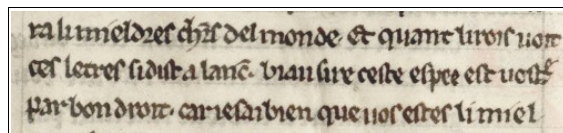 ra li mieldres chrs del monde. Et quant li rois uoit
ces letres si dist a lanc. biau sire ceste espee est uostre
par bon droit. car ie sai bien que uos estes li miel